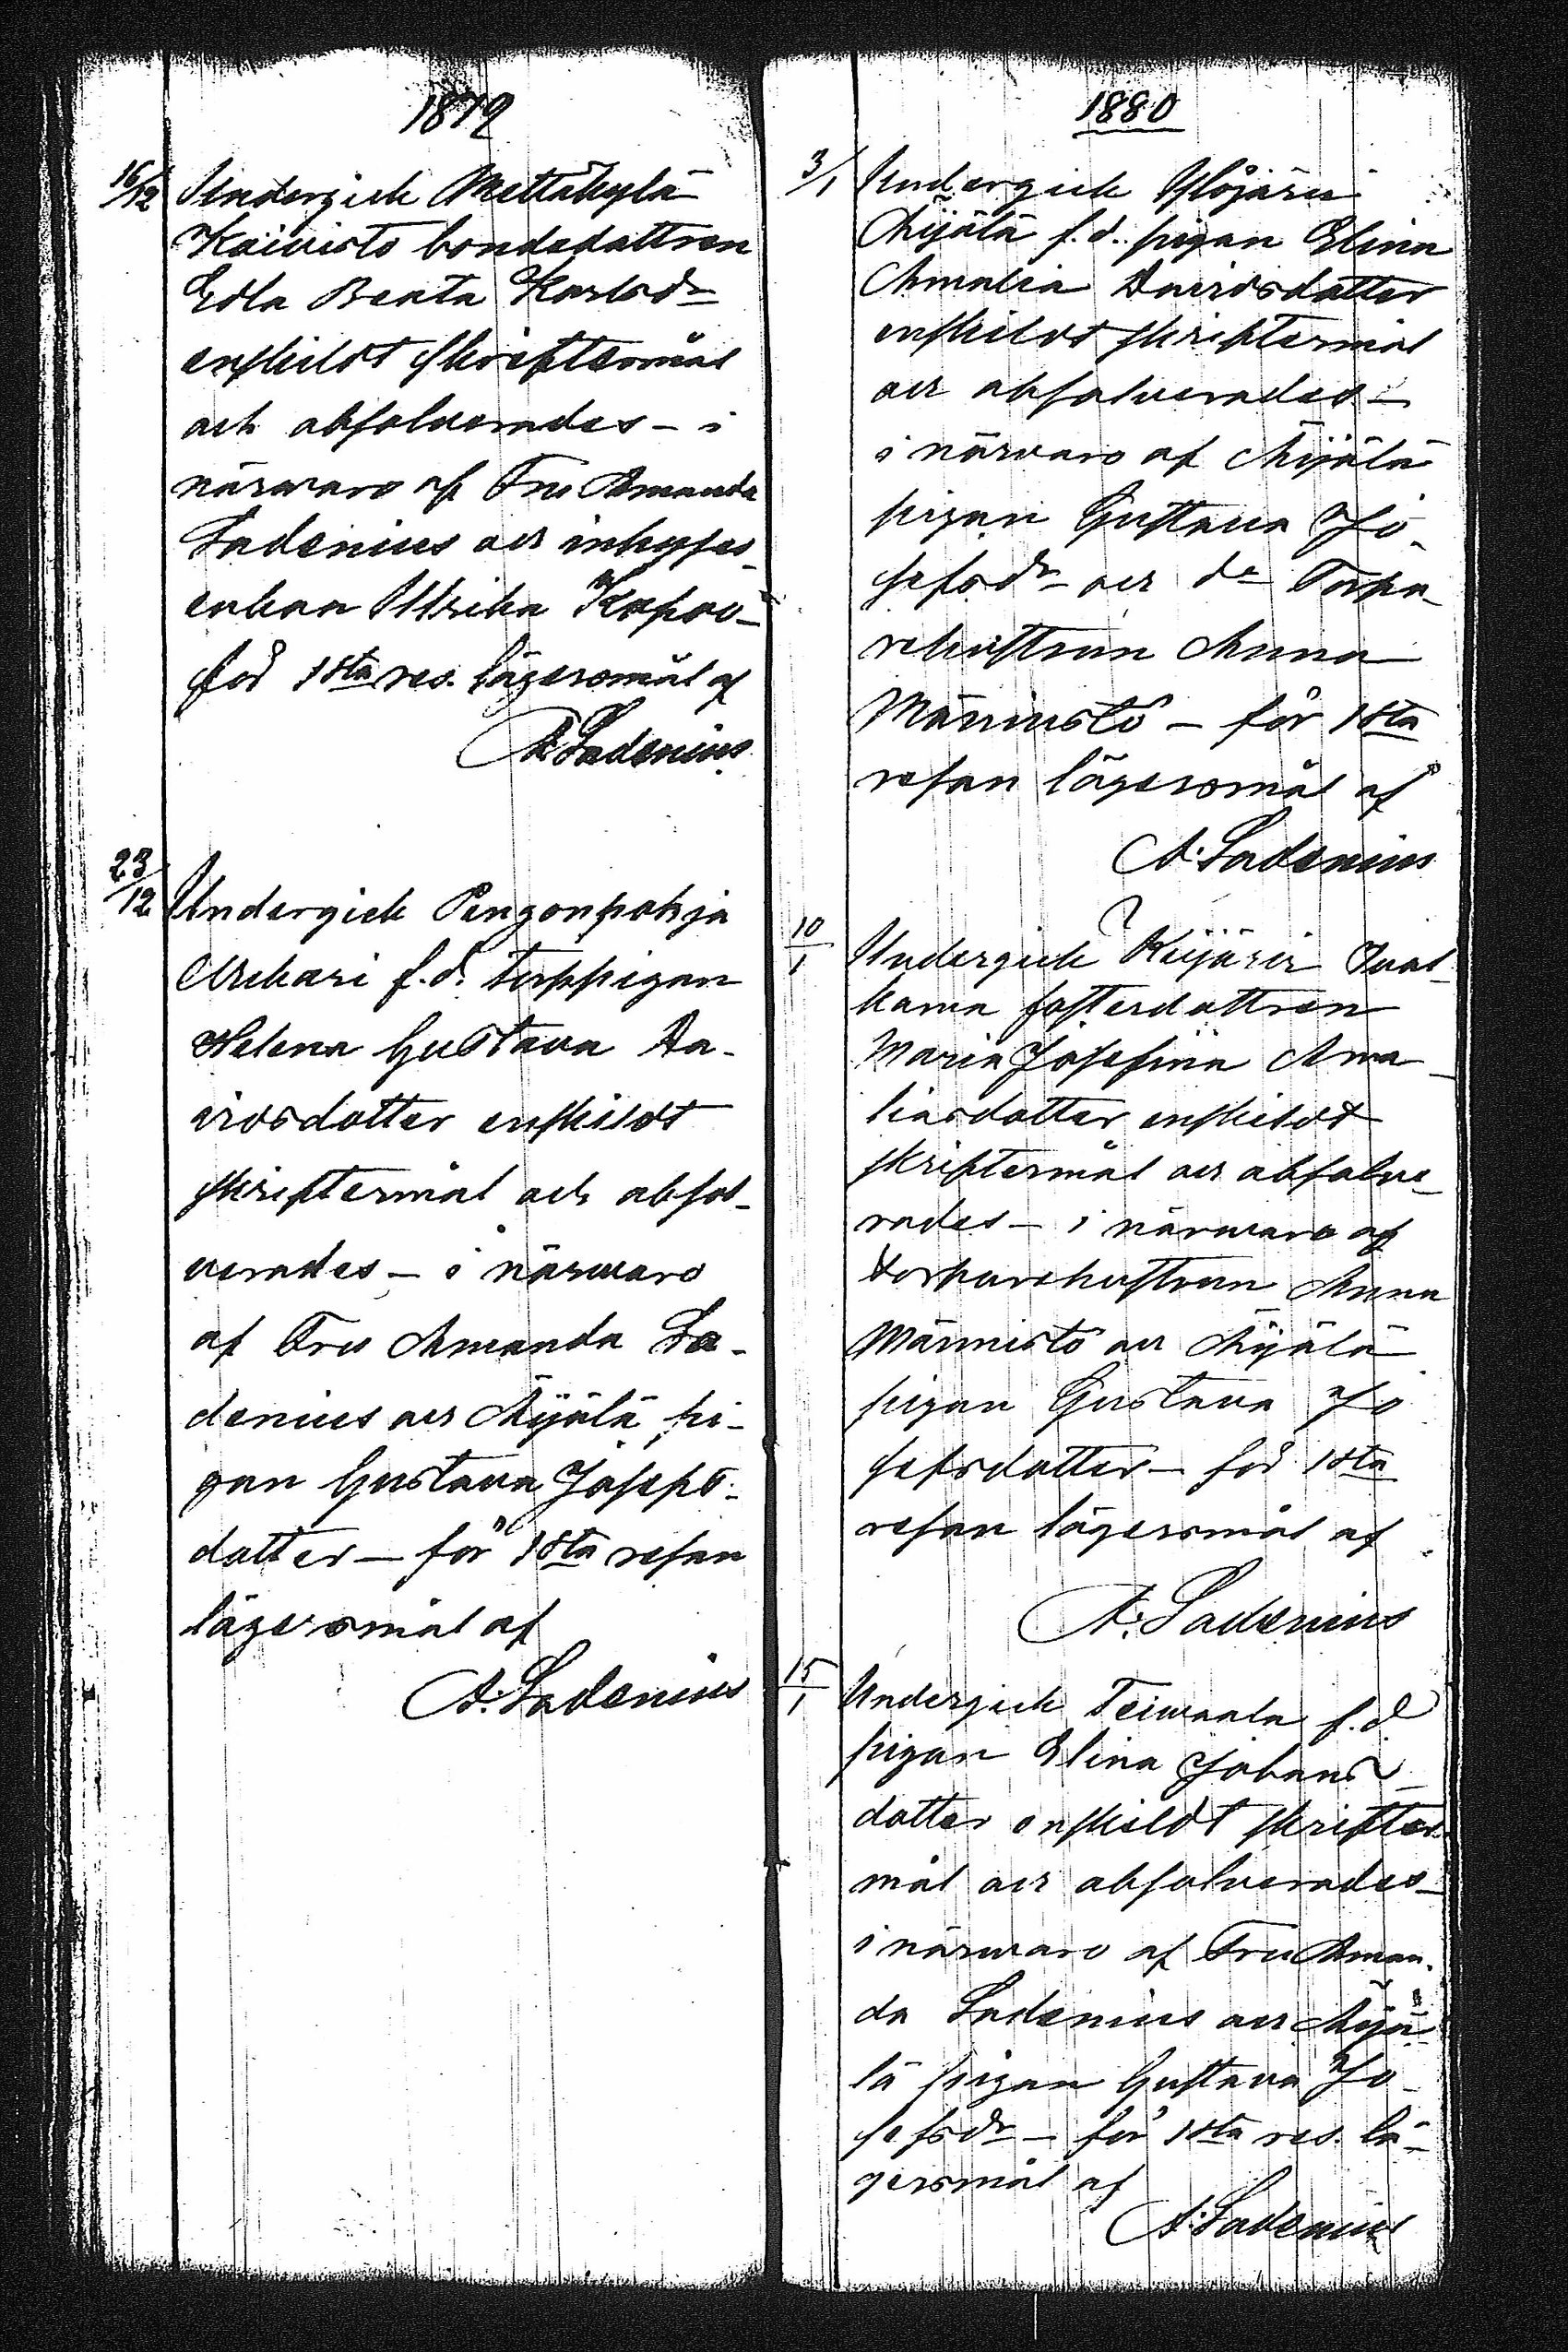 1879
16/12 Undergick Mettäkylä
Koivisto bondedottren
Edla Beata Karlsdr
enskildt skriftermål
och absolverades - i
närvaro af Fru Amanda
Ladenius och inhyses
enkan Ulrika Kapoo-
för 1sta res. lägersmål af
A. Ladenius
23/12 Undergick Pengonpohja
Arkari f.d. torppigan
Helena Gustava Da-
vidsdotter enskildt
skriftermål och absol-
verades - i närvaro
af Fru Amanda La-
denius och Äijälä pi-
gan Gustava Josefs-
dotter - för 1sta resan
lägersmål af
A. Ladenius
1880
3/1 Undergick Ylöjärvi
Äijälä f.d. pigan Elina
Amalia Davidsdotter
enskildt skriftermål
och absolverades -
i närvaro af Äijälä
pigan Gustava Jo-
sefsdr och dr Torpa-
rehustrun Anna
Männistö - för 1sta
resan lägersmål af
A. Ladenius
10/1 Undergick Keijärvi
kama fosterdottren
Maria Josefina Ama-
liasdotter enskildt
skriftermål och absolve-
rades - i närvaro af
torparehustrun Anna
Männistö och Äijälä
pigan Gustava Jo
sefsdotter - för 1sta
resan lägersmål af
A. Ladenius
15/1 Undergick Teivaala f.d.
pigan Elina Johans-
dotter enskildt skrifter-
mål och absolverades -
i närvaro af Fru Aman-
da Ladenius och Äijä-
lä pigan Gustava Jo-
sefsdr - för 1sta res. lä-
gersmål af
A. Ladenius